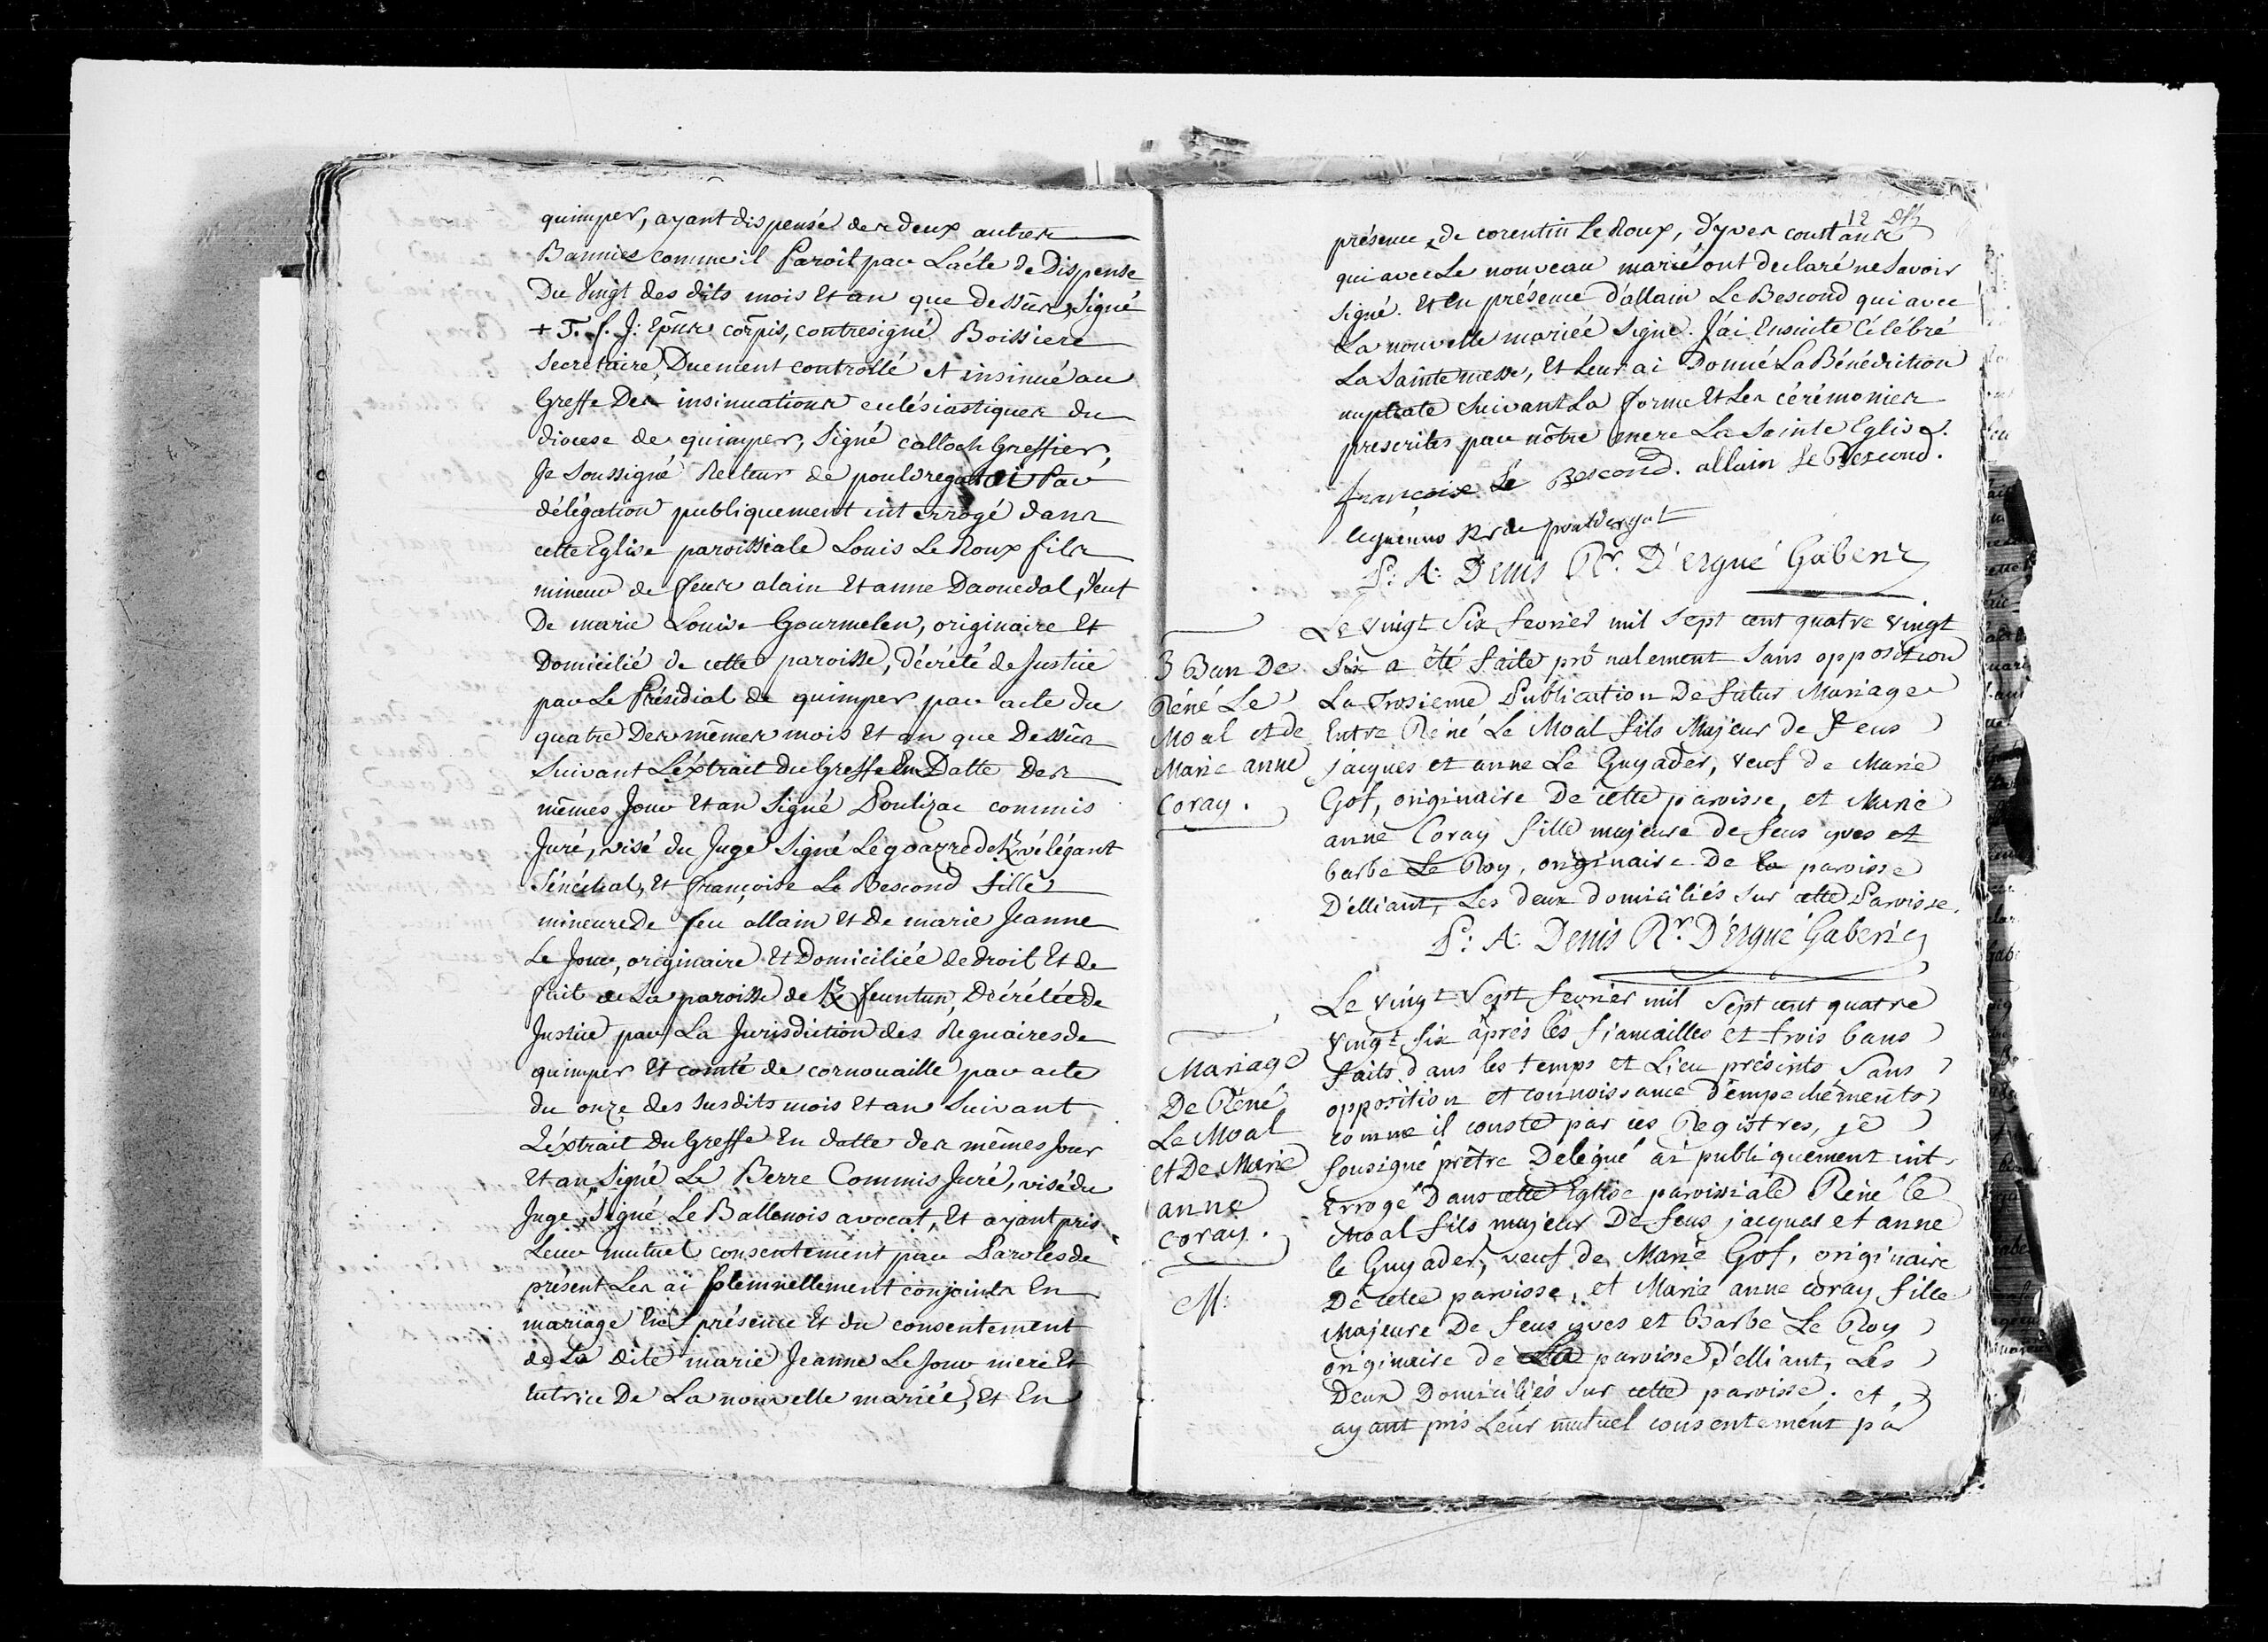 quimper, ayant dispensé des deux autres
Bannies comme il Paroit par L'acte de Dispense
Du Vingt des dits mois et an que dessûs, Signé
+ T. f. J: Epûs corpis, contresigné Boissiere
Secretaire, Duement controllé et insinué au
Greffe Des insinuations eclésiastiques du
diocese de quimper, Signé calloch Greffier,
Je Soussigné Recteur de pouldregat ai Par
délégation publiquement interrogé dans
cette Eglise paroissiale Louis Le Roux fils
mineur de feus alain Et anne Daouedal, Veuf
De marie Louise Gourmelen, originaire Et
Domicilié de cette paroisse, décrété de Justice
par Le Présidial de quimper par acte du
quatre Des mêmes mois Et an que Dessûs
Suivant L'éxtrait Du Greffe En Datte Des
mêmes Jour Et an Signé Poulizac commis
Juré, visé du Juge Signé Legoazre de Kvélégant
Sénéchal, Et françoise Le Bescond fille
mineure De feu allain Et de marie Jeanne
Le Jour, originaire Et Domiciliée de droit Et de
fait de La paroisse de Kfeuntun, Décrétée de
Justice par La Jurisdiction des Reguaires de
quimper Et comté de cornouaille par acte
du onze des susdits mois Et an Suivant
L'éxtrait Du Greffe En datte des mêmes Jour
Et an, Signé Le Berre Commis Juré, visé du
Juge, Signé Le Ballenois avocat, Et ayant pris
Leur mutuel consentement par Paroles de
présent Les ai Solemnellement conjoints En
mariage En présence Et du consentement
de La dite marie Jeanne Le Jour mere Et
tutrice De La nouvelle mariée, Et En
12
présence de corentin Le Roux, d'yves constans
qui avec Le nouveau marié ont declaré ne Savoir
Signé. Et En présence d'allain Le Bescond qui avec
La nouvelle mariéé Signe. J'ai Ensuite Célébré
La Sainte messe, Et Leur ai Donné La Bénédiction
nuptiale Suivant La forme Et Les cérémonies
prescrites par nôtre mere La Sainte Eglise.
françoise Le Bescond. allain Le Bescond.
Leguenno Rr de pouldergat
P: A: Denis Rr. D'ergué Gaberic
3 Ban De
Réné Le
Moal et de
Marie anne
Coray.
Le vingt Six fevrier mil sept cent quatre vingt
Six a été faite prônalement sans opposition
La Troisieme Publication De futur Mariage
Entre Réné Le Moal fils Majeur de feus
jacques et anne Le Guyader, veuf de Marie
Gof, originaire De cette paroisse, et Marie
anne Coray fille majeure de feus yves et
barbe Le Roy, originaire De la paroisse
D'elliant, Les deux domiciliés sur cette Paroisse.
P: A: Denis Rr. D'ergué Gaberic
Mariage
De Réné
Le Moal
et De Marie
anne
coray.
M:
Le vingt Sept fevrier mil sept cent quatre
vingt six après les fiancailles et trois bans
faits dans les temps et Lieu présints Sans
opposition et connoissance d'empechéments
comme il conste par ces Registres, je
sousigné prêtre Délégué ai publiquement int-
Errogé Dans cette Eglise paroissiale Réné le
Moal fils majeur De feus jacques et anne
le Guyader, veuf de Marie Gof, originaire
De cette paroisse, et Marie anne coray fille
Majeure De feus yves et Barbe Le Roy
originaire de La paroisse d'elliant, Les
Deux Domiciliés sur cette paroisse. et
ayant pris Leur mutuel consentement par